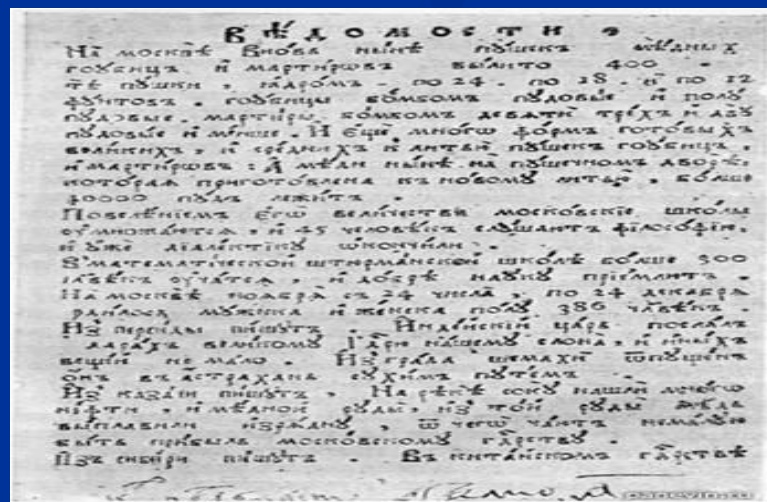 ВѢДОМОСТИ
На москвѣ вновь нынѣ пушекъ мѣдныхъ
гоубицъ и мартировъ вылито 400.
тѣ пушки, ядромъ. по 24. по 18. и по 12
фунтовъ. гоубицы бомбомъ пудовые и полу
пудовые. мартиры бомбомъ девяти трехъ и двупудовые и менше. И еще много формъ готовыхъ
великихъ, и среднихъ и литьи пушекъ гоубицъ.
и мартировъ: А мѣди нынѣ на пушечномъ дворѣ,
которая приготовлена къ новому литью. болше
40000 пудъ лежитъ.
Повелѣнiемъ егѡ величества московскiе школы
оумножаются, и 45 человѣкъ слушаютъ фiлософiю,
и уже дiалектiку ѡкончили.
В математической штюрманской школѣ болше 300
человѣкъ оучатся, и добрѣ науку прiемлютъ.
На москвѣ ноября съ 24 числа, по 24 декабря
родилось мужска и женска полу 386 человѣкъ.
Из персиды пишутъ. Индѣйскiй царь послалъ
въ дарахъ великому Гдрю нашему слона, и иныхъ
вещей не мало. Из града шемахи ѿпущенъ
онъ въ астрахань сухимъ путемъ.
Из казани пишутъ. На рѣкѣ соку нашли много
нефти, и мѣдной руды, из той руды мѣдь
выплавили изрядну, ѿ чегѡ чаютъ немалую
быть прибыль московскому гдрству.
Изъ сибири пишутъ. Въ китайскомъ гдрствѣ